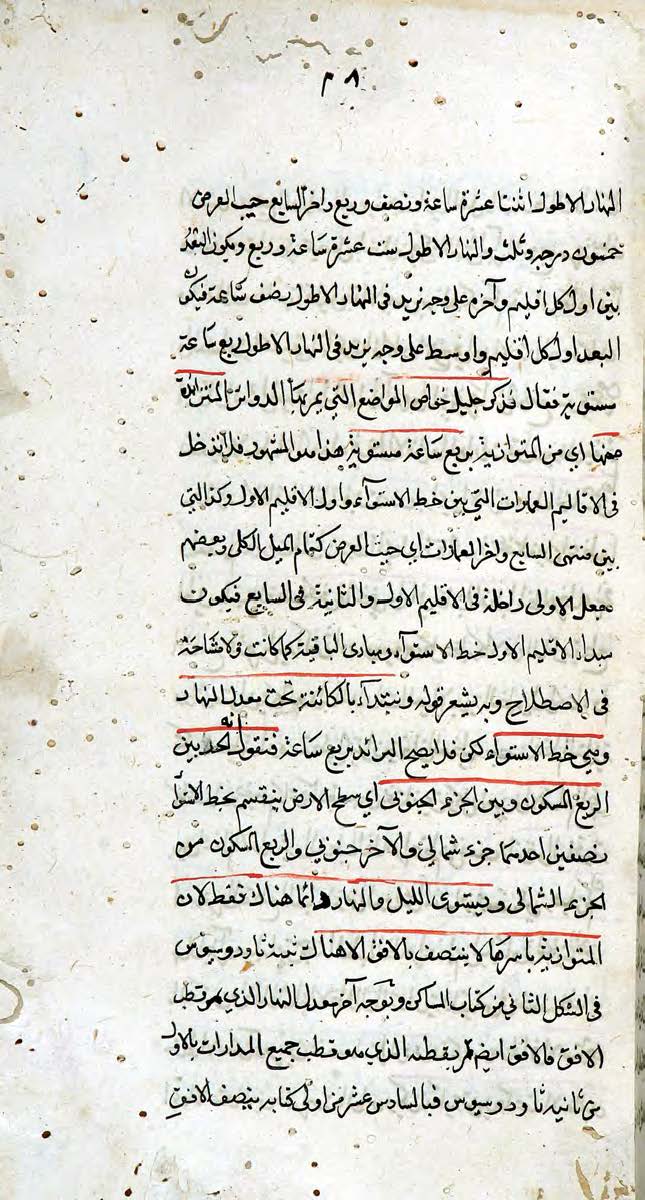 ٣٨
النهار الاطول اثنتا عشرة ساعة ونصف وربع واخر السابع حيث العرض
خمسون درجة وثلث والنهار الاطول ست عشرة ساعة وربع ويكون البعد
بين اول كل اقليم وآخره على وجه يزيد في النهار الاطول نصف ساعة فيكون
البعد اول كل اقليم واوسط على وجه يزيد في النهار الاطول ربع ساعة
مستوية فقال فذكر جليل خواص المواضع التي يمر بها الدوائر المتزائدة
اي من المتوازية بربع ساعة مستوية هذا هو المشهور فلا تدخل
في الاقاليم العمارات التي بين خط الاستوآء واول الاقليم الاول وكذا التي
بين منتهى السابع واخر العمارات اي حيث العرض كتمام الميل الكلي وبعضهم
جعل الاولى داخلة في الاقليم الاول والثانية في السابع فيكون
مبداء الاقليم الاول خط الاستوآء ومبادى الباقية كما كانت ولا مشاحة
في الاصطلاح وبه يشعر قوله ونبتدآء بالكائنة تحت معدل النهار
وهي خط الاستواء لكن فلا يصح التزائد بربع ساعة فنقول انه الحد بين
الربع المسكون وبين الجزء الجنوبي اي سطح الارض ينقسم بخط الاستوآ
نصفين احدهما جزء شمالي والآخر جنوبي والربع المسكون من
الجزء الشمالى ويستوى الليل والنهار دائما هناك فقط لان
المتوازية باسرها لا ينتصف بالافق الا هناك ثاودوسيوس
في الشكل الثاني من كتاب المساكن وبوجه آخر معدل النهار الذي يمر قطب
الافق فالافق ايضا يمر بقطبه الذي هو قطب جميع المدارات بالاول
من ثانية ثاودوسيوس فبالسادس عشر من اولى كتابه ينصف الافق